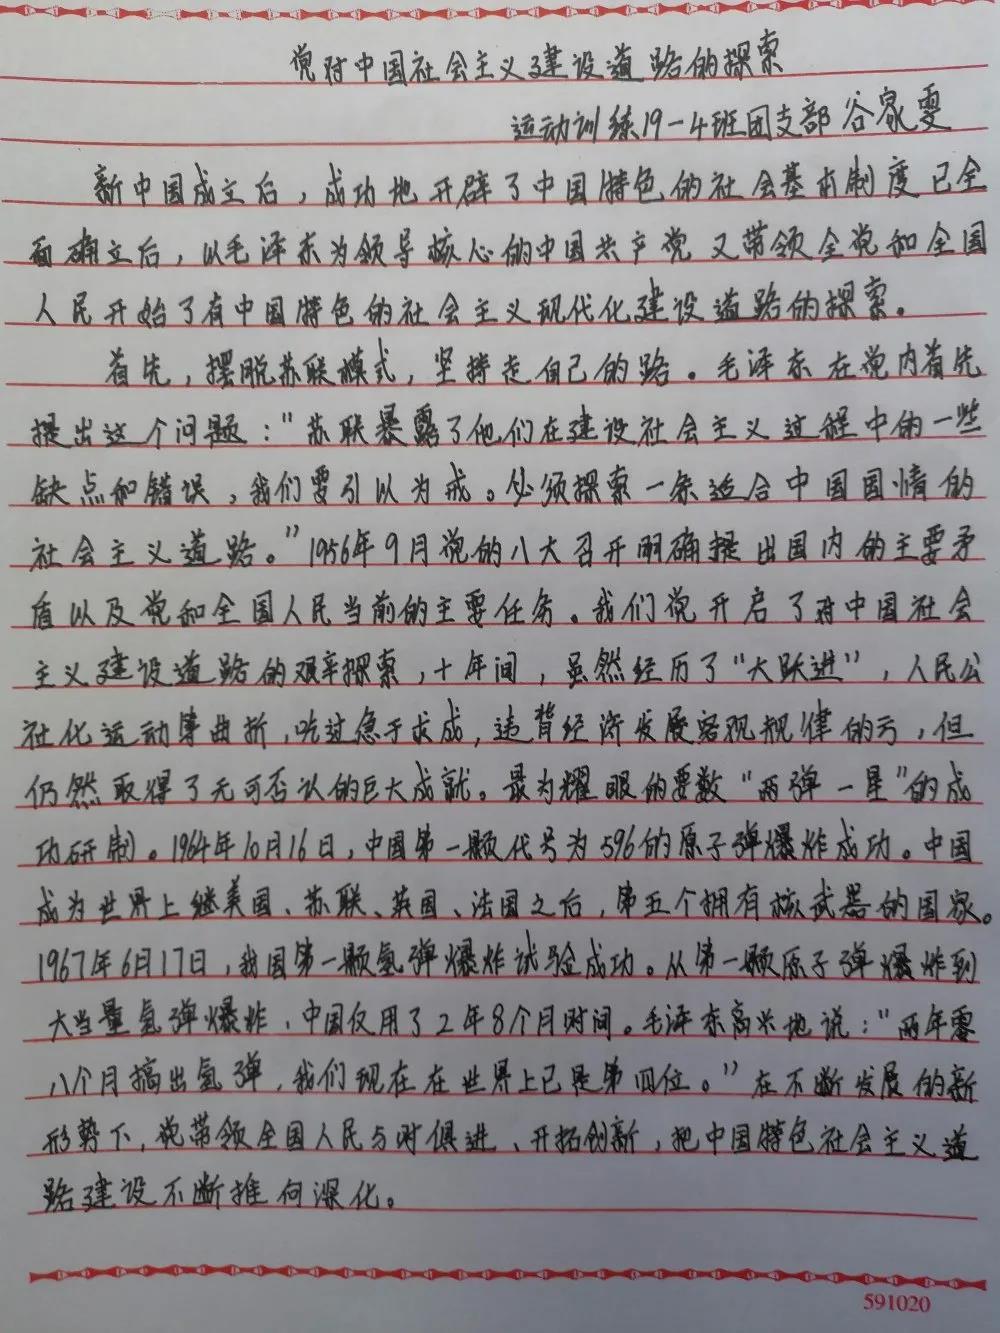 党对中国社会主义建设道路的探索
运动训练19-4班团支部 谷家雯
新中国成立后，成功地开辟了中国特色的社会基本制度已全
面确立后，以毛泽东为领导核心的中国共产党又带领全党和全国
人民开始了有中国特色的社会主义现代化建设道路的探索。
首先，摆脱苏联模式，坚持走自己的路。毛泽东在党内首先
提出这个问题：“苏联暴露了他们在建设社会主义过程中的一些
缺点和错误，我们要引以为戒。必须探索一条适合中国国情的
社会主义道路。”1956年9月党的八大召开明确提出国内的主要矛
盾以及党和全国人民当前的主要任务。我们党开启了对中国社会
主义建设道路的艰辛探索，十年间，虽然经历了“大跃进”，人民公
社化运动等曲折，吃过急于求成，违背经济发展客观规律的亏，但
仍然取得了无可否认的巨大成就。最为耀眼的要数“两弹一星”的成
功研制。1964年10月16日，中国第一颗代号为596的原子弹爆炸成功。中国
成为世界上继美国、苏联、英国、法国之后，第五个拥有核武器的国家。
1967年6月17日，我国第一颗氢弹爆炸试验成功。从第一颗原子弹爆炸到
大当量氢弹爆炸，中国仅用了2年8个月时间。毛泽东高兴地说：“两年零
八个月搞出氢弹，我们现在在世界上已是第四位。”在不断发展的新
形势下，党带领全国人民与时俱进、开拓创新，把中国特色社会主义道
路建设不断推向深化。
591020